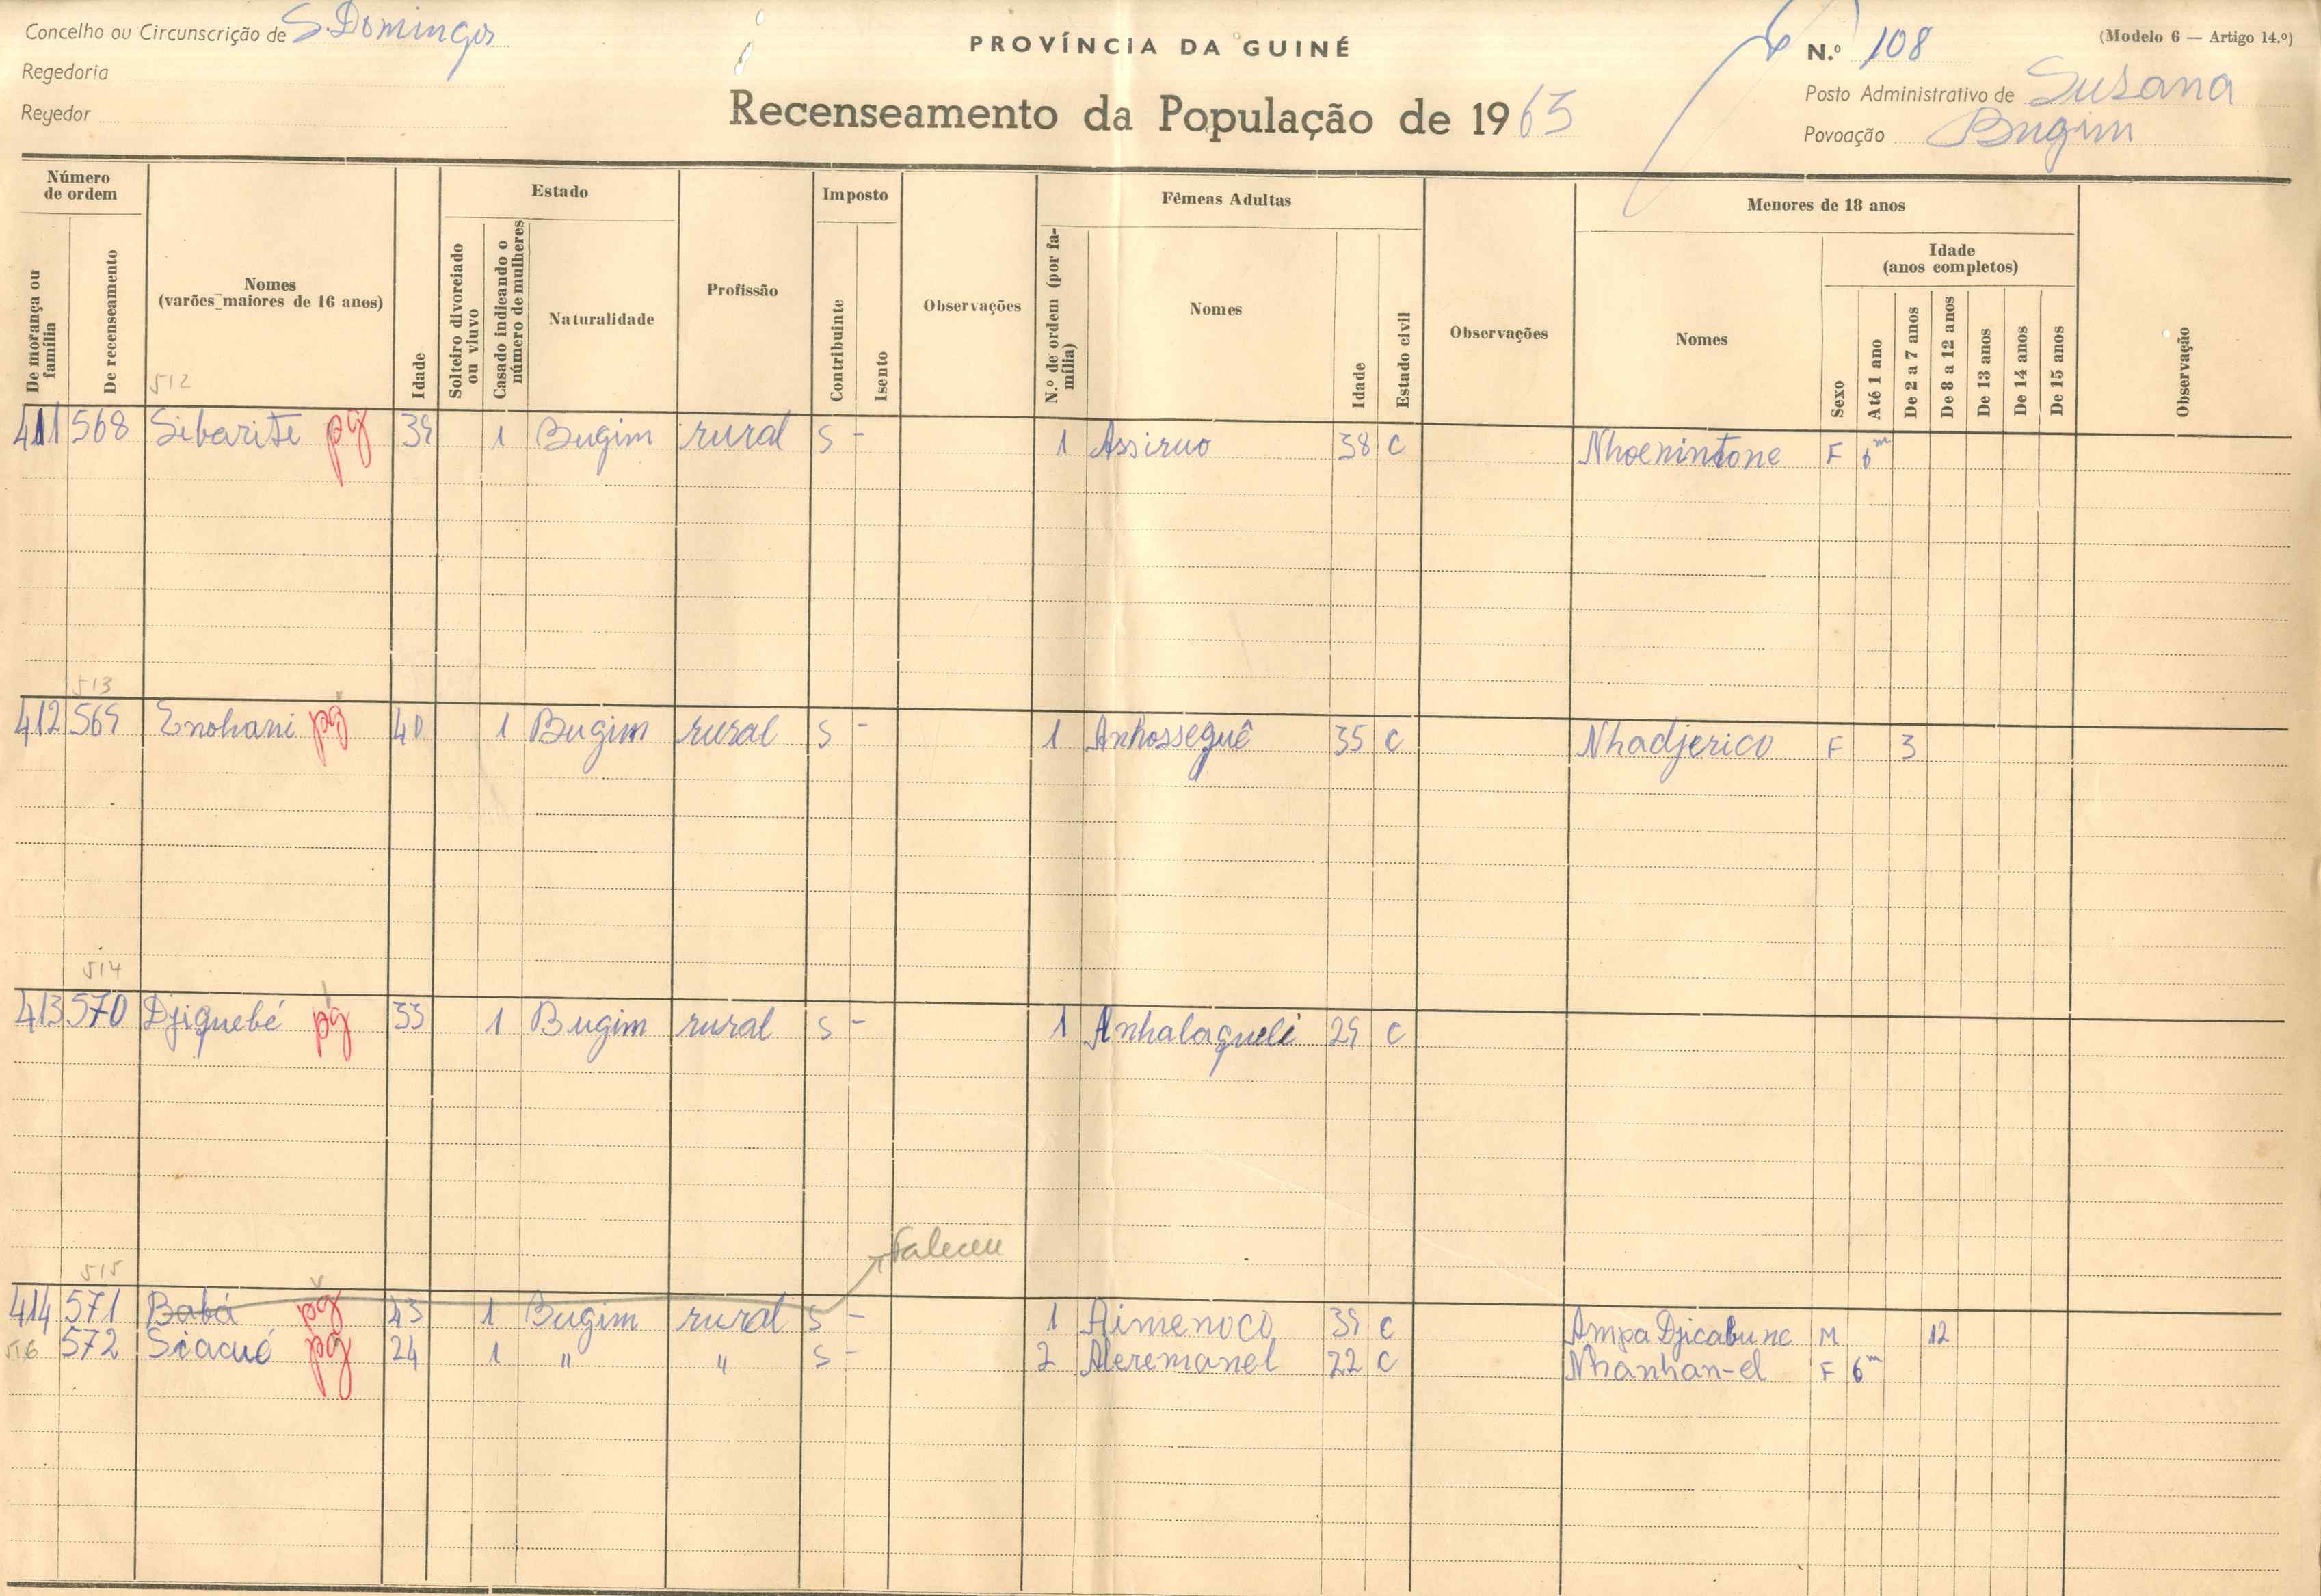 Concelho ou Circunscrição de S. Domingos
PROVÍNCIA DA GUINÉ
N.º 108
(Modelo 6 — Artigo 14.º)
Regedoria
Recenseamento da População de 1963
Posto Administrativo de Susana
Regedor
Povoação Bugim
Número de ordem
De morança ou família
De recenseamento
Nomes
(varões maiores de 16 anos)
Idade
Estado
Solteiro divorciado ou viuvo
Casado indicando o número de mulheres
Naturalidade
Profissão
Imposto
Contribuinte
Isento
Observações
Fêmeas Adultas
N.º de ordem (por família)
Nomes
Idade
Estado civil
Observações
Menores de 18 anos
Nomes
Sexo
Idade
(anos completos)
Até 1 ano
De 2 a 7 anos
De 8 a 12 anos
De 13 anos
De 14 anos
De 15 anos
Observação
512
411 568 Sibarite pg 39 1 Bugim rural S - 1 Assiruo 38 C Nhoenintone F 6m
513
412 569 Enohani pg 40 1 Bugim rural S - 1 Anhosseguê 35 C Nhadjerico F 3
514
413 570 Djiguebé pg 33 1 Bugim rural S - 1 Anhalaguelé 29 C
Faleceu
515
414 571 Babá pg 43 1 Bugim rural S - 1 Aimenoco 39 C Ampa Djicabune M 12
516 572 Siacué pg 24 1 " " S - 2 Aleremanel 22 C Nhanhan-el F 6m